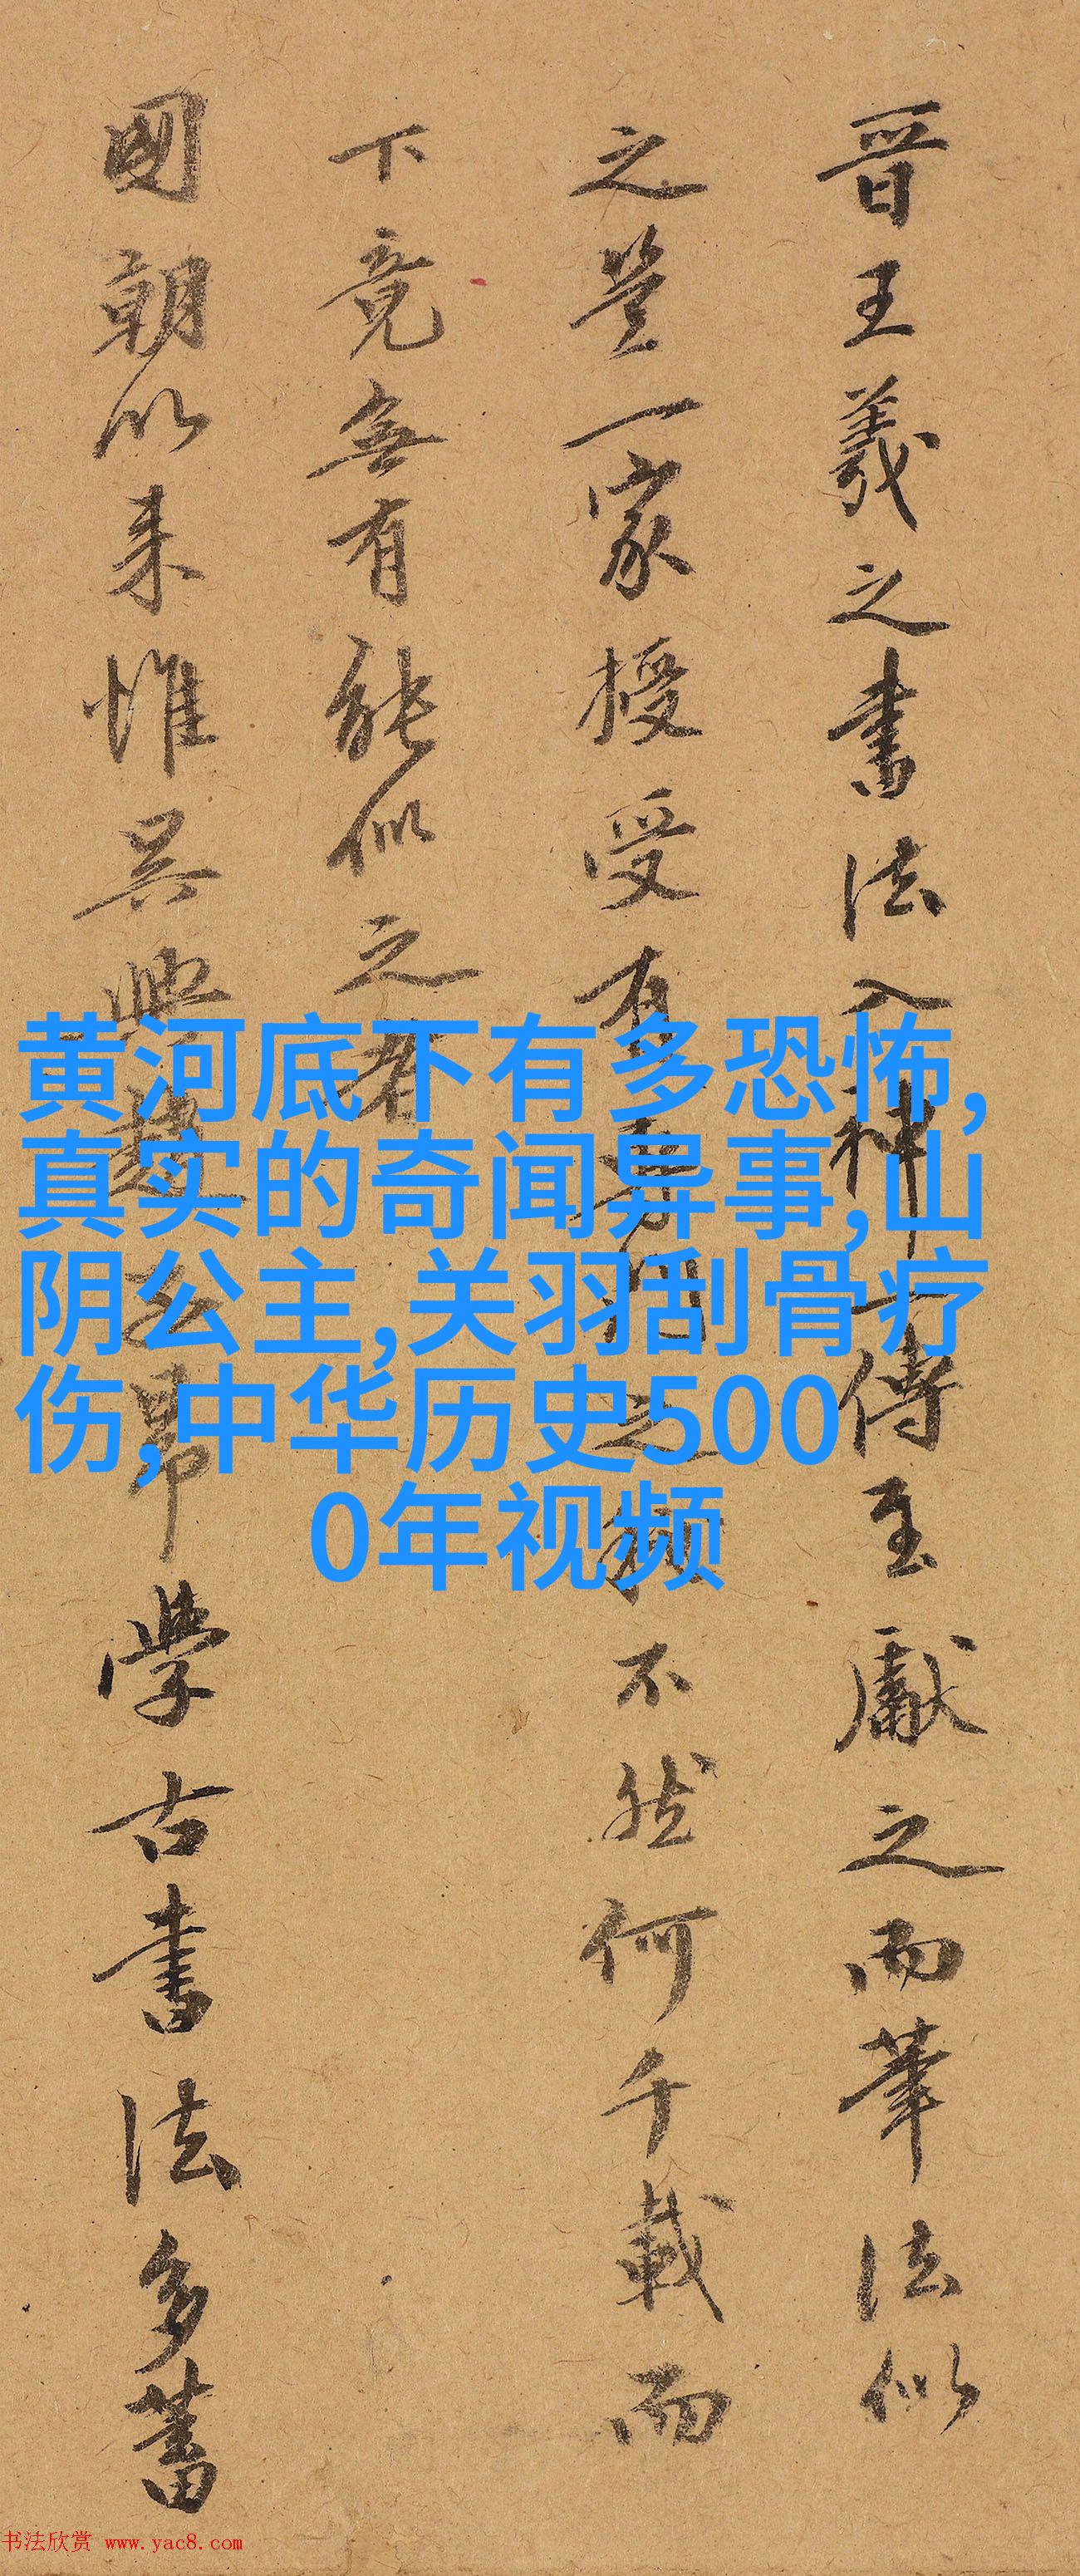 晋王羲之書法入神一傳至獻之而筆法似
之豈一家授受有之不然何千載而
下竟無有能似之者
國朝以来惟吴興趙子昂學古書法多蓄
黄河底下有多恐怖,
真实的奇闻异事,山
阴公主,关羽刮骨疗
伤,中华历史500
0年视频
书法欣赏 www.yac8.com